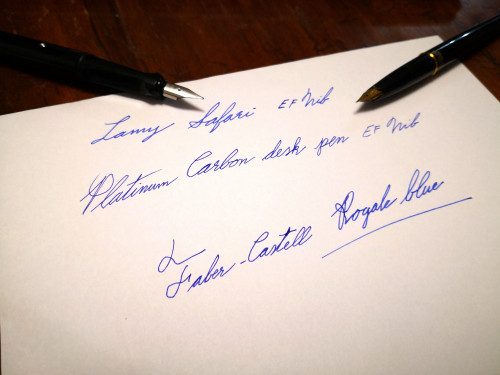 Lamy Safari EF Nib
Platinum Carbon desk pen EF Nib
Faber-Castell Royale blue